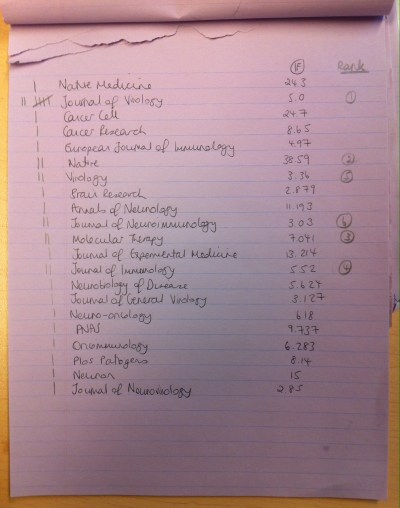 IF Rank
| Nature Medicine 24.3
|| 卌 Journal of Virology 5.0 ①
| Cancer Cell 24.7
| Cancer Research 8.65
| European Journal of Immunology 4.97
|| Nature 38.59 ②
|| Virology 3.36 ⑤
| Brain Research 2.879
| Annals of Neurology 11.193
|| Journal of Neuroimmunology 3.03 ⑥
|| Molecular Therapy 7.041 ③
| Journal of Experimental Medicine 13.214
|| Journal of Immunology 5.52 ④
| Neurobiology of Disease 5.624
| Journal of General Virology 3.127
| Neuro-oncology 6.18
| PNAS 9.737
| Oncoimmunology 6.283
| Plos Patogens 8.14
| Neuron 15
| Journal of Neurovirology 2.85